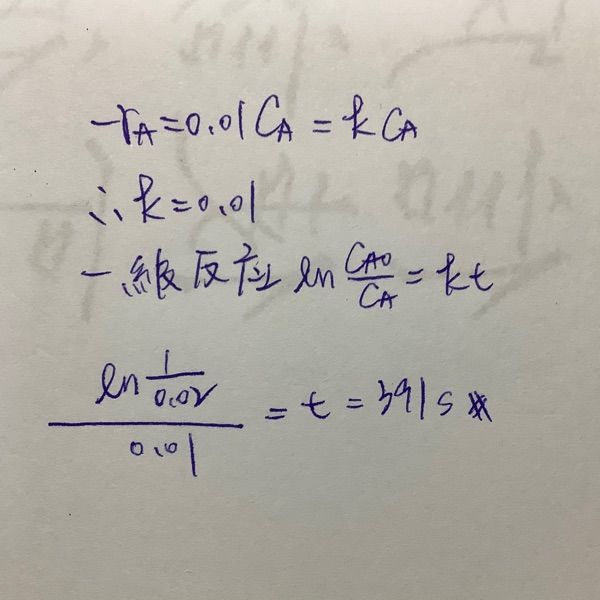 -rA=0.01CA=kCA
∴k=0.01
一級反应 ln CA0/CA=kt
ln 1/0.02 / 0.01 = t = 391s